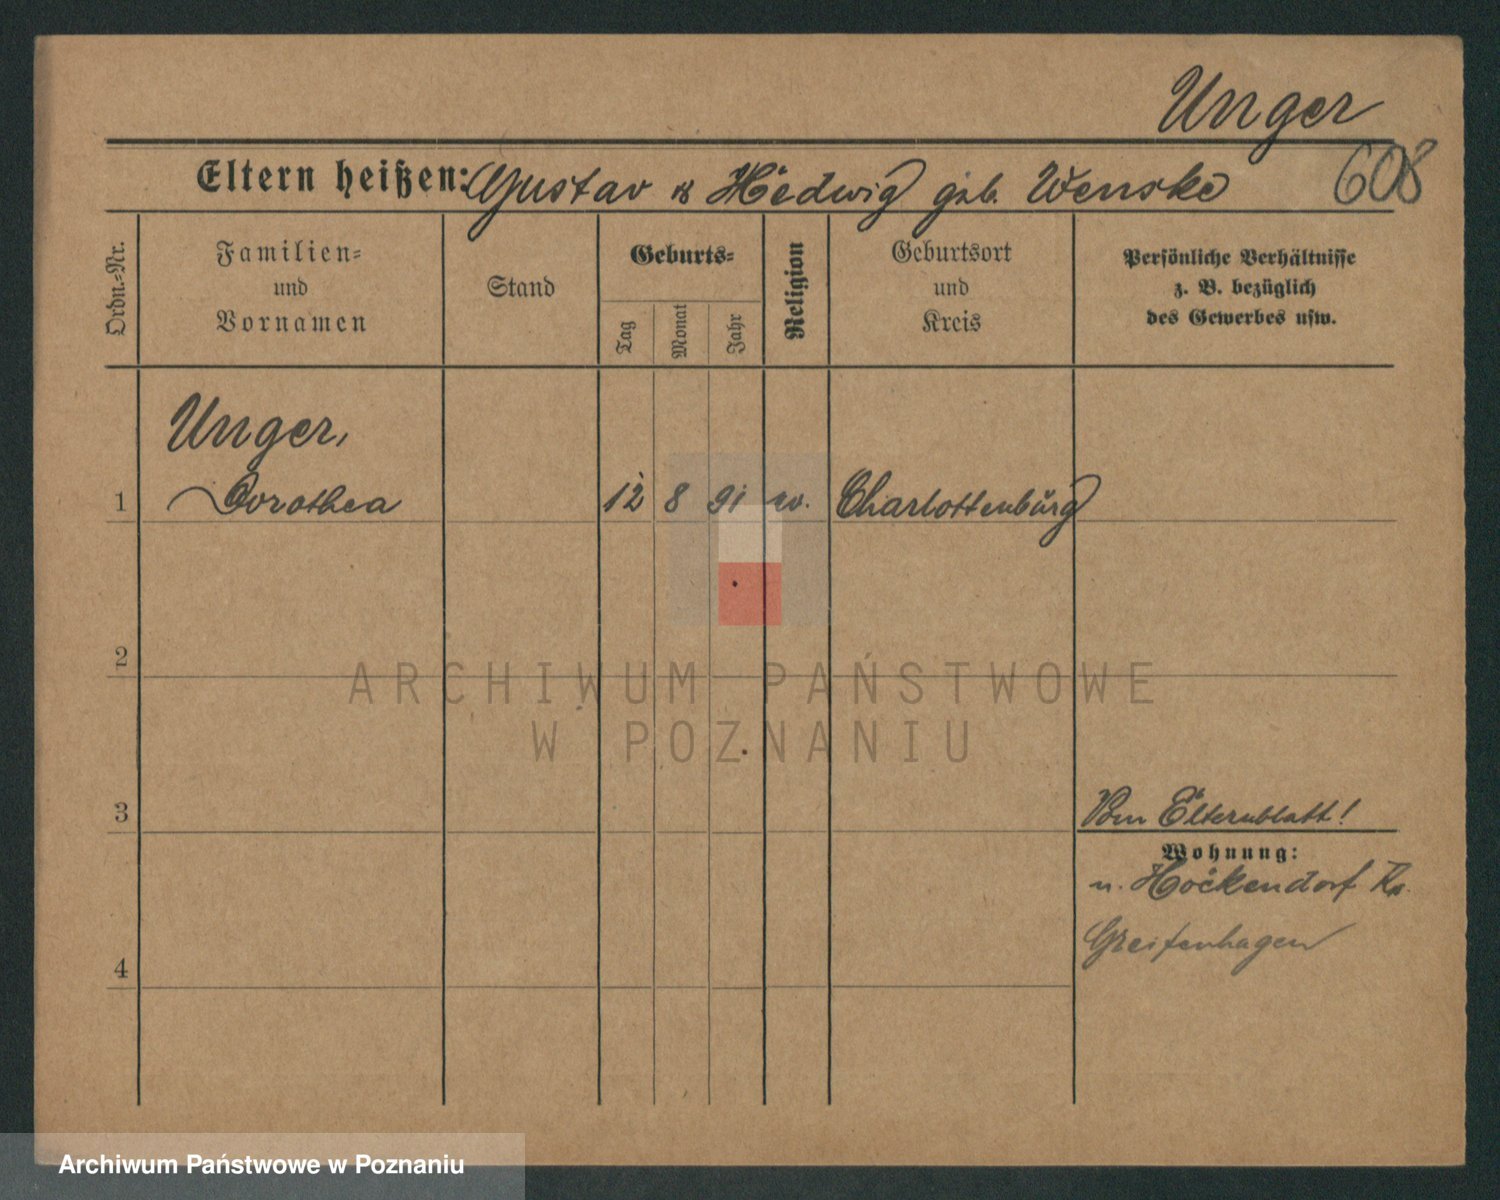 Unger
608
Eltern heißen: Gustav & Hedwig geb. Wenske
Ordn.-Nr.
Familien-
und
Vornamen
Stand
Geburts-
Tag
Monat
Jahr
Religion
Geburtsort
und
Kreis
Persönliche Verhältnisse
z. B. bezüglich
des Gewerbes usw.
Unger,
1 Dorothea 12 8 91 ev. Charlottenburg
2
ARCHIWUM PAŃSTWOWE
W POZNANIU
3
Vom Elternblatt!
Wohnung:
n. Höckendorf Kr.
Greifenhagen
4
Archiwum Państwowe w Poznaniu